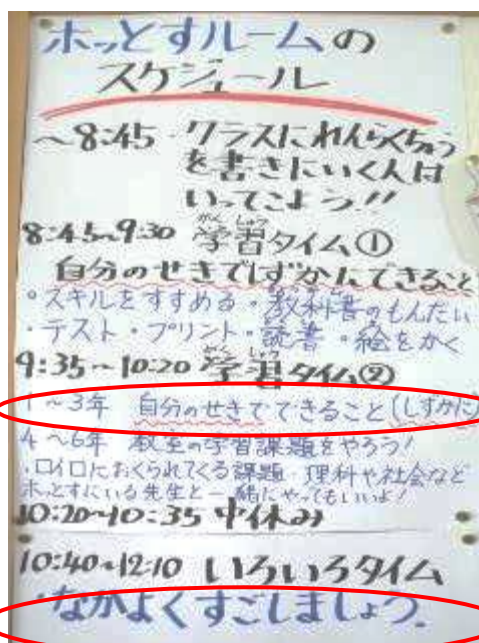 ホっとすルームの
スケジュール
~8:45 クラスにれんらくちょう
を書きにいく人は
いってこよう!!
8:45~9:30 学習タイム①
がん しゅう
自分のせきでしずかにできること
・スキルをすすめる・教科書のもんだい
・テスト・プリント・読書・絵をかく
9:35~10:20 学習タイム②
1~3年 自分のせきでできること(しずかに)
4~6年 教室の学習課題をやろう!
・ロイロにおくられてくる課題・理科や社会など
ホっとすにいる先生と一緒にやってもいいよ!
10:20~10:35 中休み
10:40~12:10 いろいろタイム
・なかよくすごしましょう。